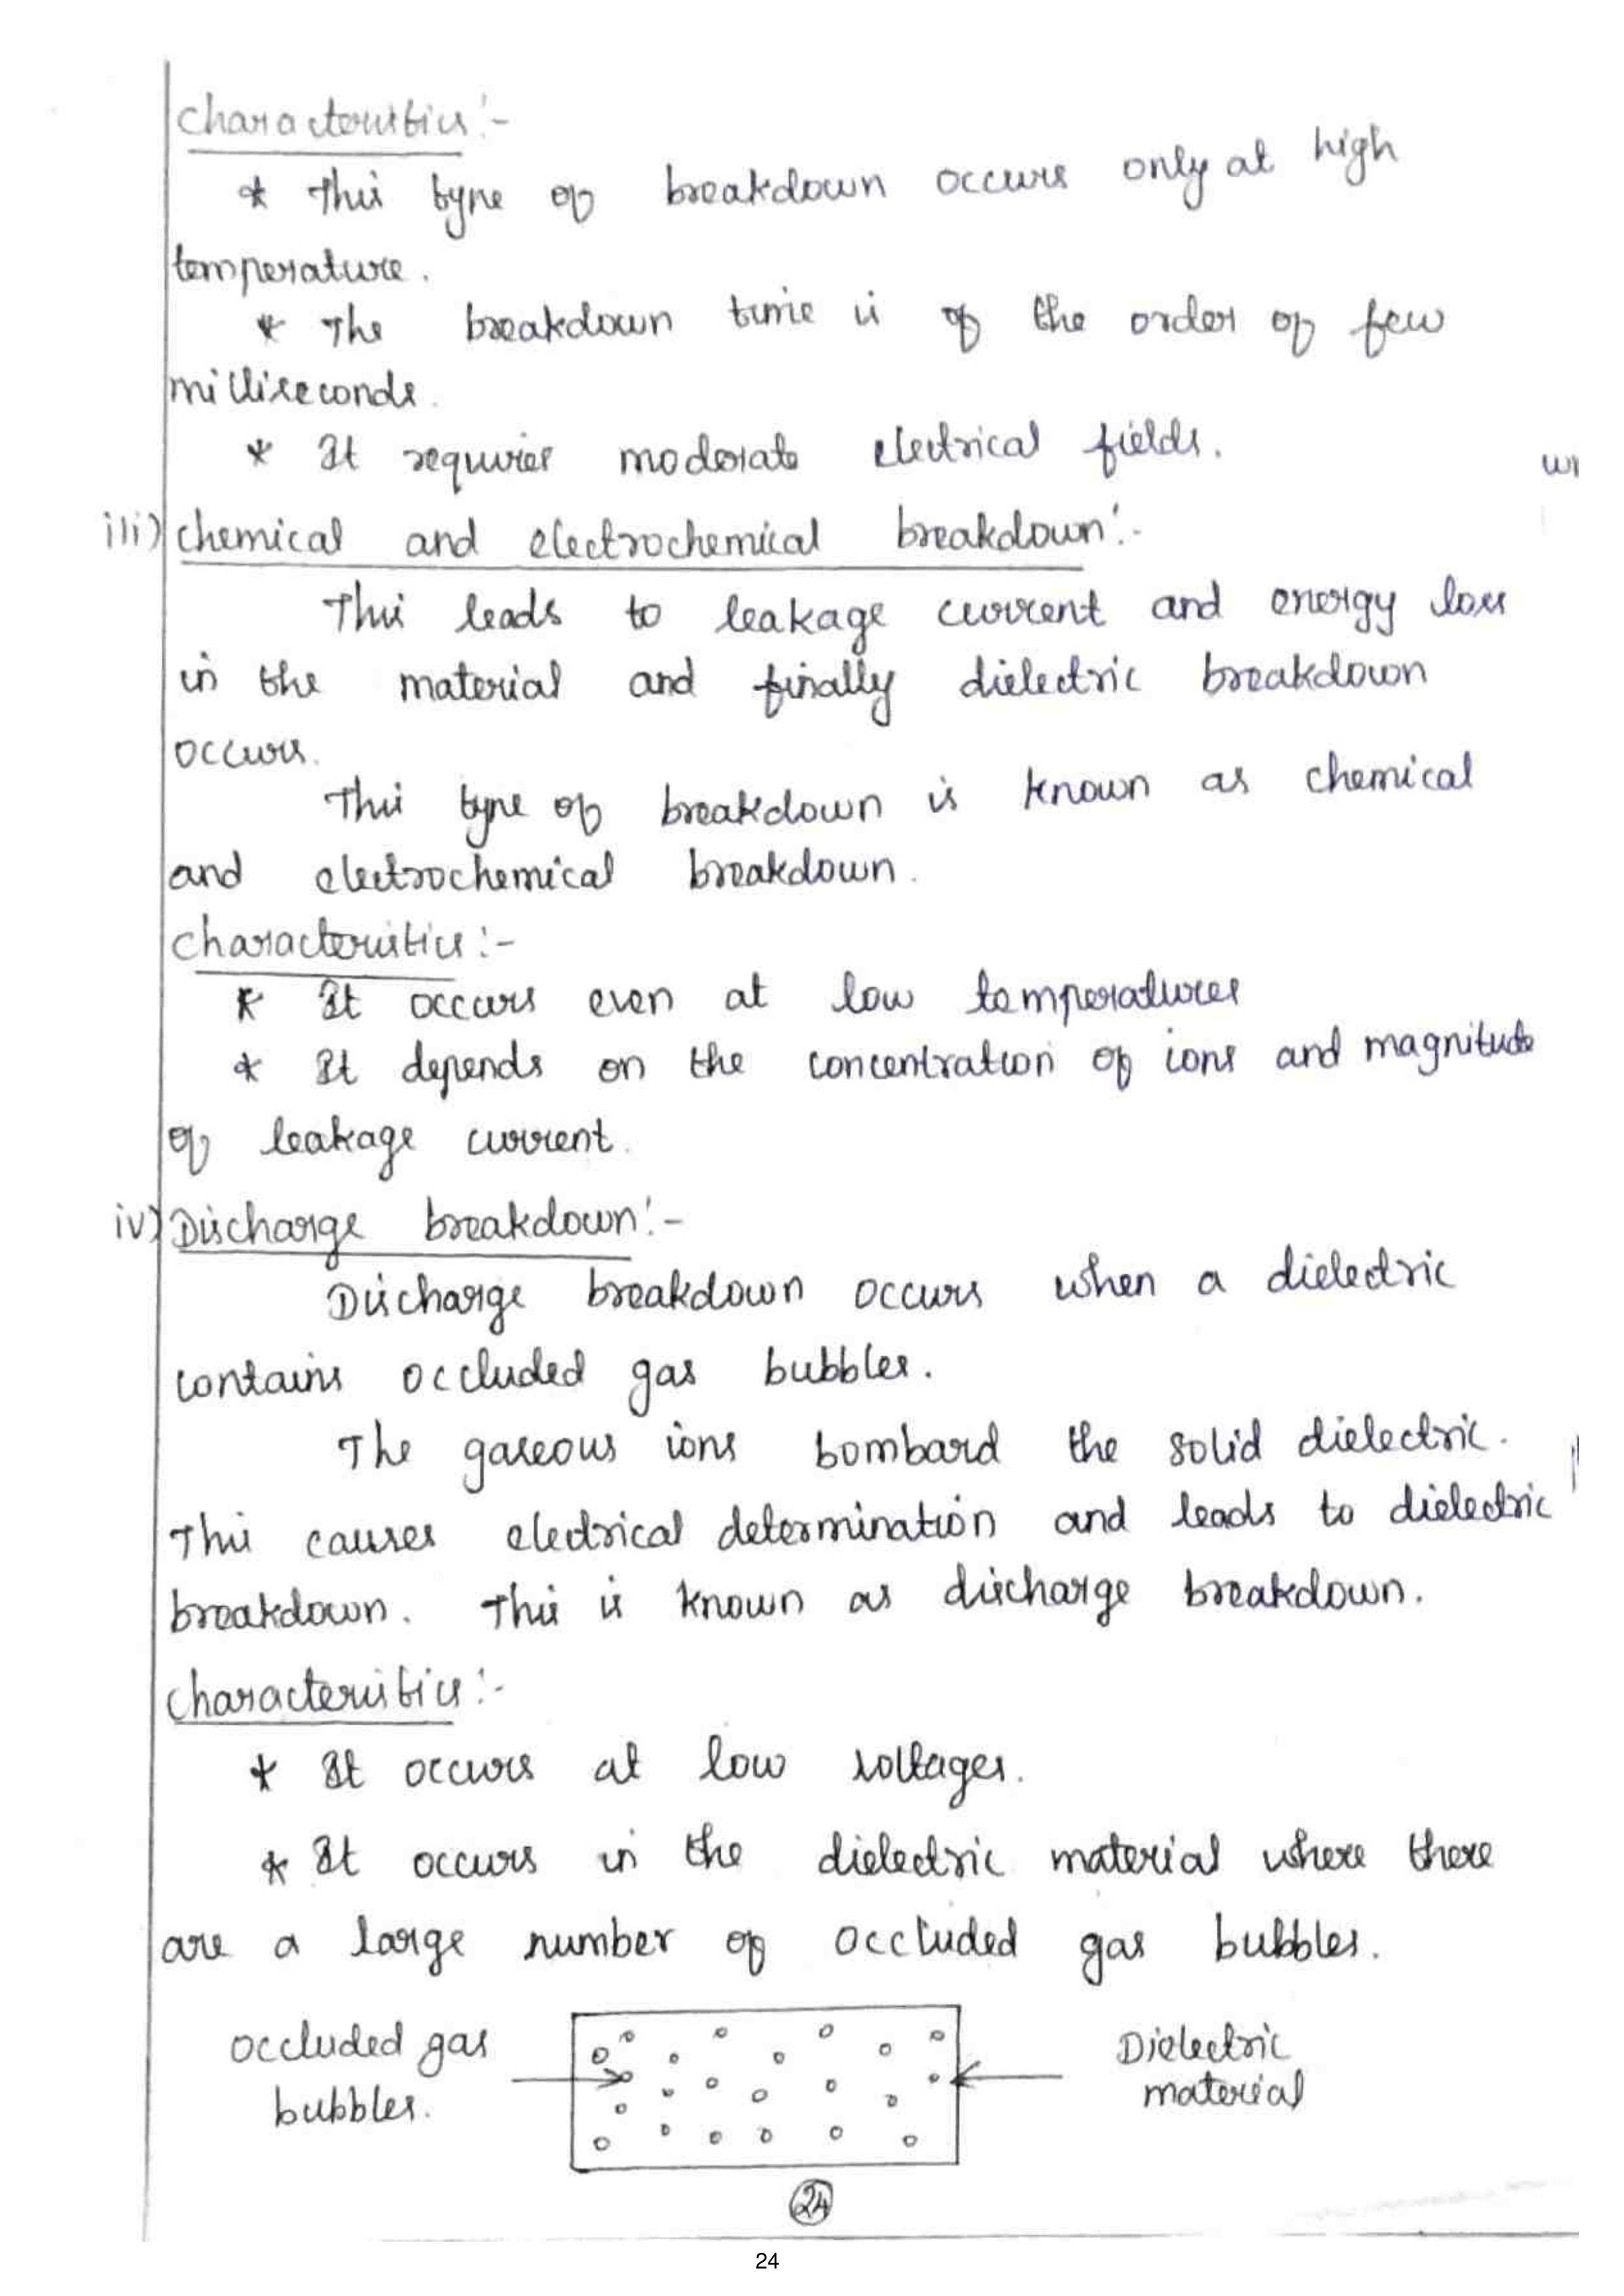 characteristics:-
* This type of breakdown occurs only at high
temperature.
* The breakdown time is of the order of few
milliseconds.
* It requires moderate electrical fields.
iii) chemical and electrochemical breakdown:-
This leads to leakage current and energy loss
in the material and finally dielectric breakdown
occurs.
This type of breakdown is known as chemical
and electrochemical breakdown.
characteristics:-
* It occurs even at low temperatures
* It depends on the concentration of ions and magnitude
of leakage current.
iv) Discharge breakdown:-
Discharge breakdown occurs when a dielectric
contains occluded gas bubbles.
The gaseous ions bombard the solid dielectric.
This causes electrical determination and leads to dielectric
breakdown. This is known as discharge breakdown.
characteristics:-
* It occurs at low voltages.
* It occurs in the dielectric material where there
are a large number of occluded gas bubbles.
occluded gas
bubbles.
Dielectric
material
24
24